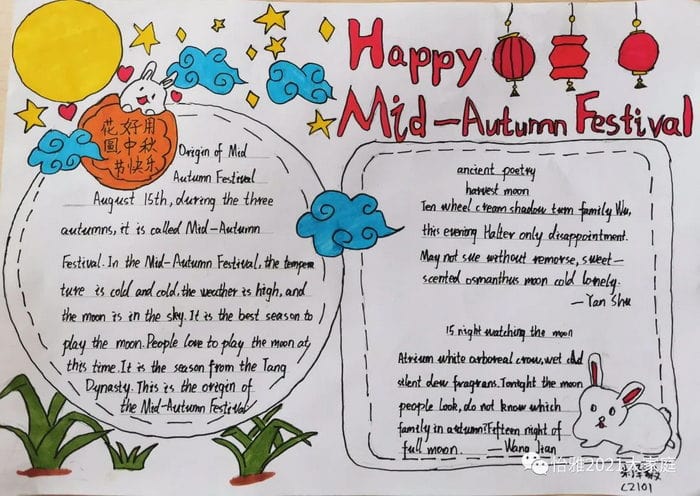 Happy
Mid-Autumn Festival
花好用
圓中秋
节快乐
Origin of Mid
Autumn Festival
August 15th, during the three
autumns, it is called Mid-Autumn
Festival. In the Mid-Autumn Festival, the tempera
ture is cold and cold, the weather is high, and
the moon is in the sky. It is the best season to
play the moon. People love to play the moon at
this time. It is the season from the Tang
Dynasty. This is the origin of
the Mid-Autumn Festival
ancient poetry
harvest moon
Ten wheel cream shadow turn family Wu,
this evening Halter only disappointment.
May not sue without remorse, sweet-
scented osmanthus moon cold lonely.
—Yan Shu
15 night watching the moon
Atrium white arboreal crow, wet did
silent dew fragrans. Tonight the moon
people look, do not know which
family in autumn? Fifteen night of
full moon. —Wang Jian
怡雅2021大家庭
C2101